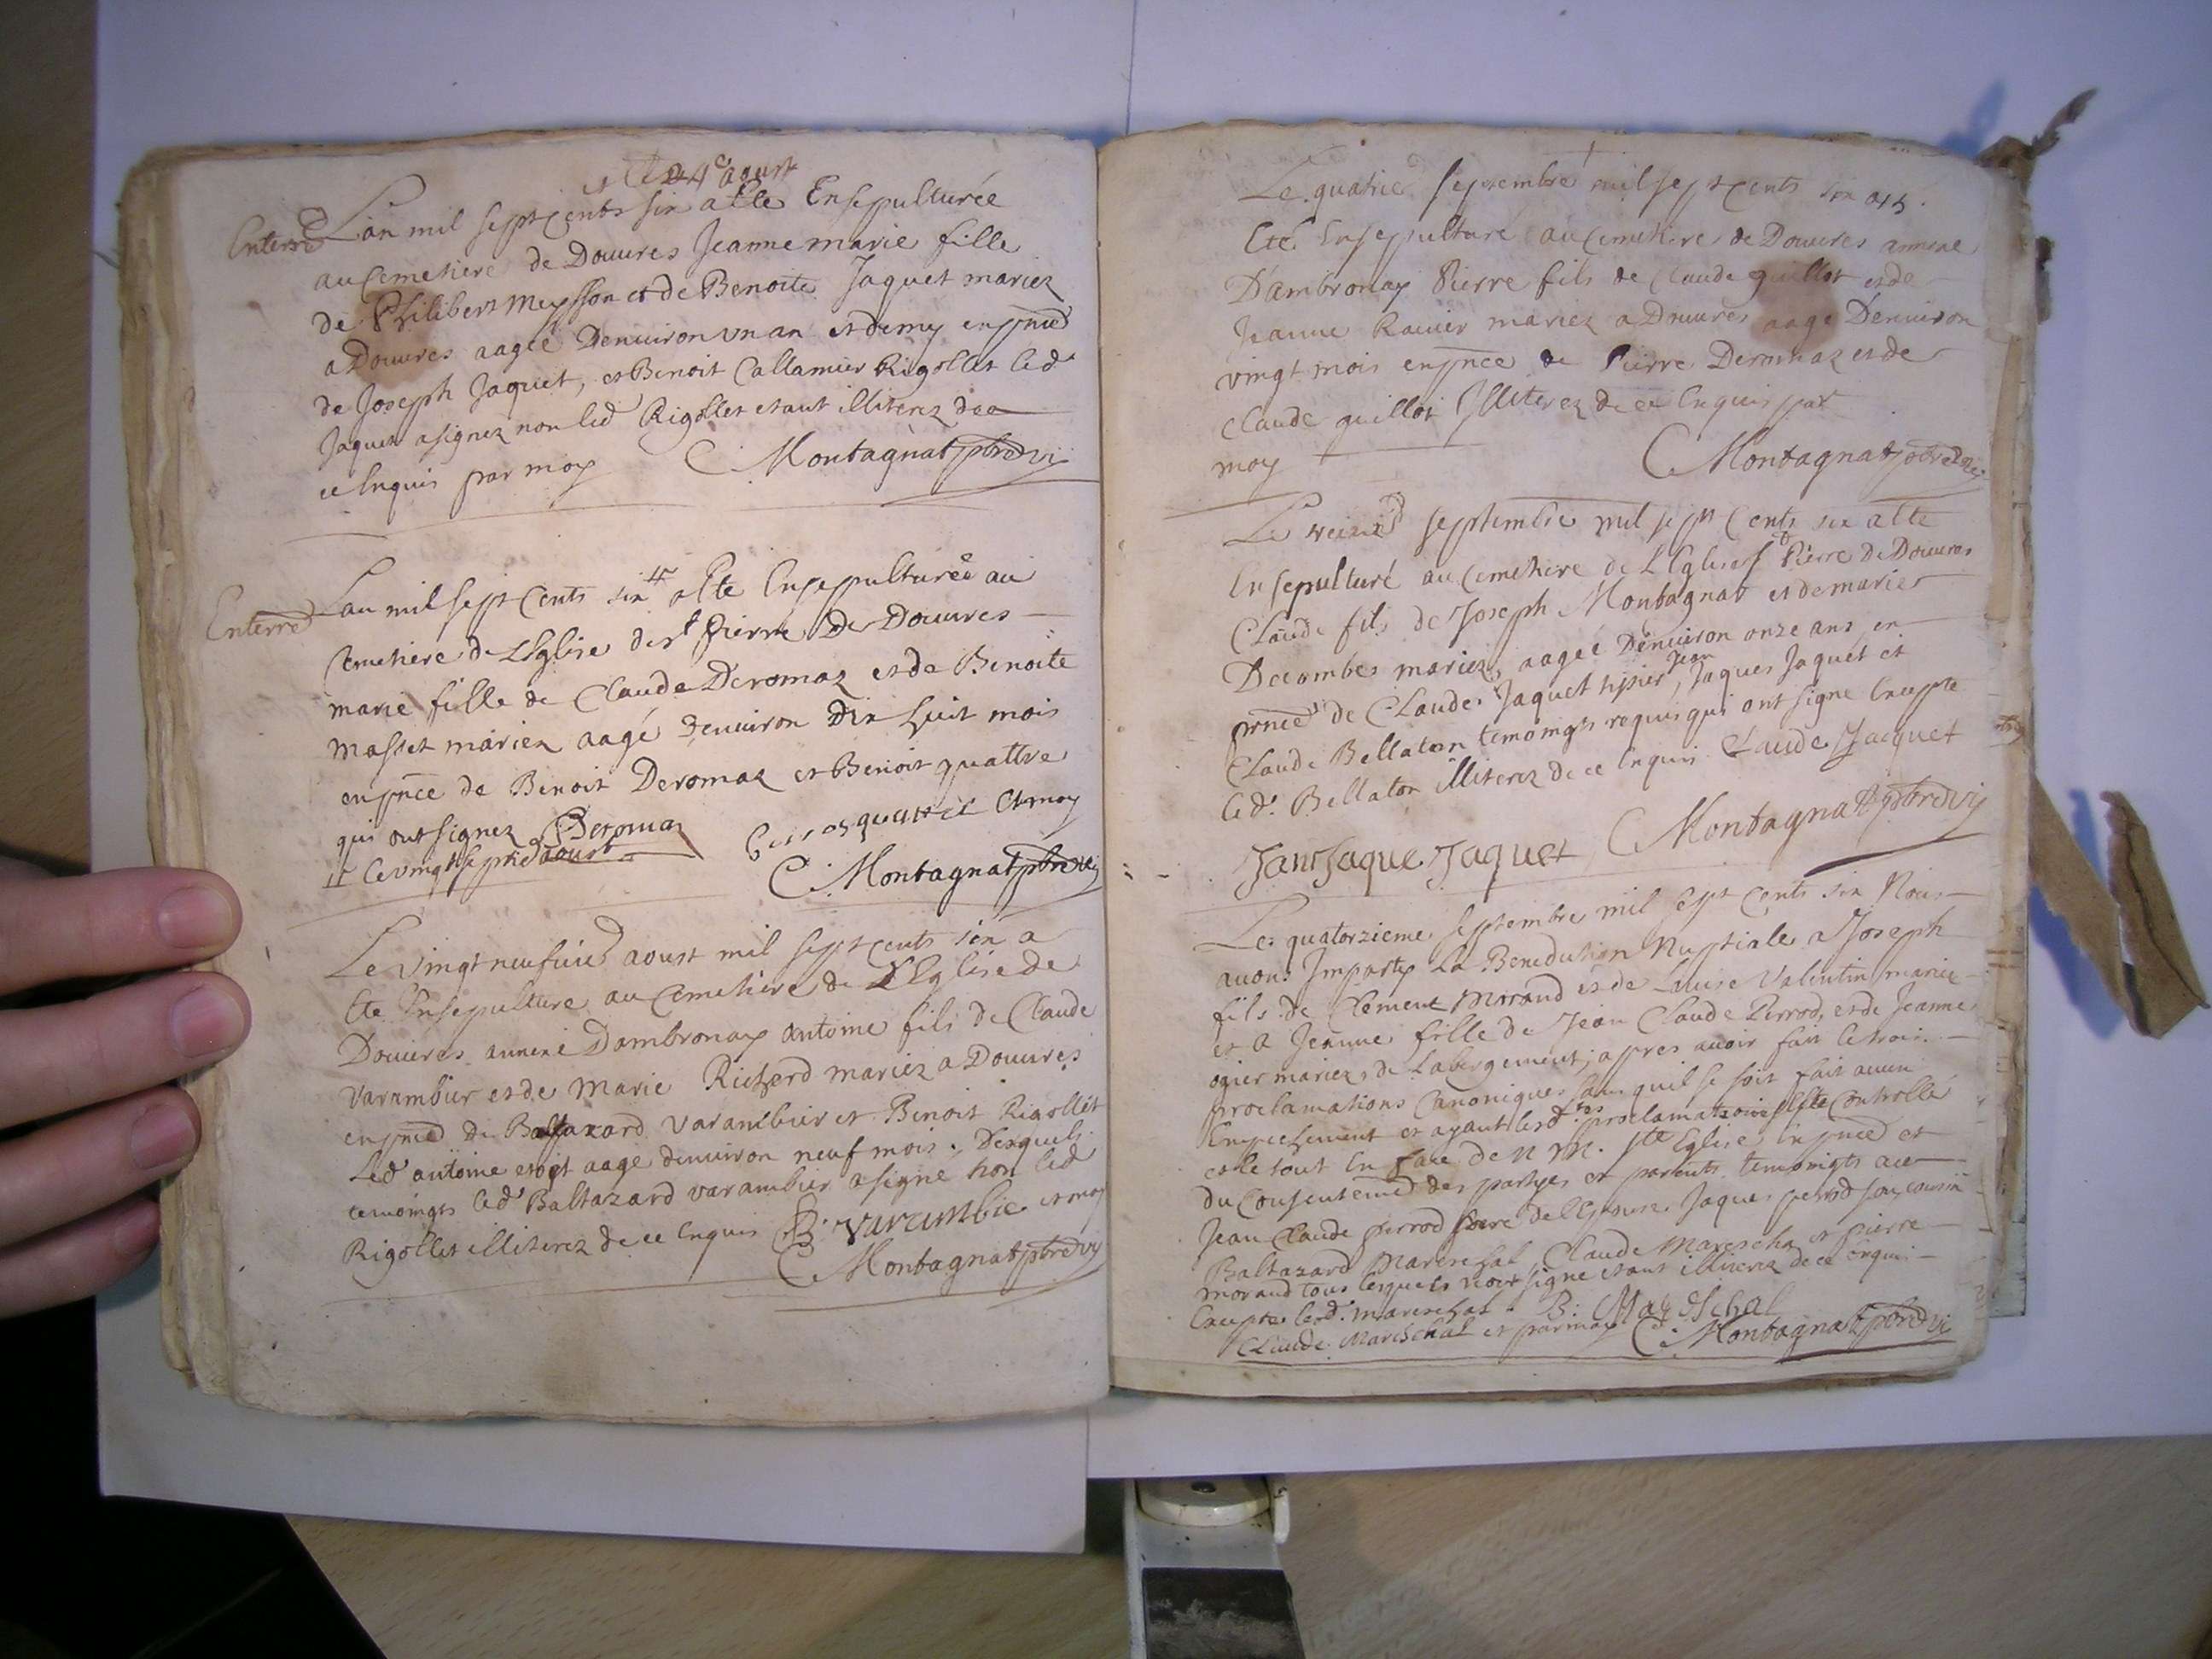 et le 24e aoust
Enterre Lan mil sept cents six a ete Ensepulturée
au Cemetiere de Douures Jeanne marie fille
de Philibert Meysson et de Benoite Jaquet mariez
a Douures aagée Denuiron vn an et demy en pnce
de Joseph Jaquet, et Benoit Callamier Rigollet led
Jaquet a signez non led Rigollet etant illiterez de
ce Enquis par moy C Montagnat pbre vi
Enterre Lan mil sept Cents six a Ete Ensepulturée au
Cemetiere de L'Eglise de st Pierre De Douures
marie fille de Claude Deromaz et de Benoite
Masset mariez aagé denuiron dix huit mois
en pnce de Benoit Deromaz et Benoit quattre
qui ont signez Deromaz quatre Et moy
le vingt sept aoust C Montagnat pbre vi
Le vingt neufuie aoust mil sept cents six a
Ete Ensepulture au Cemetiere de L'Eglise de
Douures amené Dambronay antoine fils de Claude
Varambier et de Marie Richard mariez a Douures
en pnce de Baltazard Varambier et Benoit Rigollet
Led antoine etoit aage denuiron neuf mois. Desquels
temoingts led Baltazard varambier a signe non led
Rigollet illiterez de ce Enquis B: varambie et moy
C Montagnat pbre vy
Le quatrie septembre mil sept cents six a
Eté Ensepulturé au Cemetiere de Douures amene
D'ambronay Pierre fils de Claude guillot et de
Jeanne Rauier mariez a Douures aage Denuiron
vingt mois en pnce de Pierre Deromaz et de
Claude guillot Illiterez de ce Enquis par
moy C Montagnat pbre vi
Le treizie septembre mil sept Cents six a ete
Ensepulturé au Cemetiere de L'Eglise st Pierre de Douures
Claude fils de Joseph Montagnat et de marie
Decombes mariez, aagée Denuiron onze ans en
pnce de Claude Jaquet tixier, Jean Jaques Jaquet et
Claude Bellaton temoingts requis qui ont signe Excepte
led. Bellaton illiterez de ce Enquis Claude Jacquet
Jan Jaque Jaquet C Montagnat pbre vy
Le quatorzieme septembre mil sept cents six Nous
auons Imparty La Benediction Nuptiale a Joseph
fils de Clement Morand et de Louise Valentin mariez
et a Jeanne fille de Jean Claude Perrod, et de Jeanne
ogier mariez de Labergement, appres auoir fait le trois
proclamations Canoniques sans quil se soit fait aucun
Empechement et ayant lesd. proclamations Este Controllé
et le tout En face de n m. ste Eglise En pnce et
du Consentemt des partyes et parents temoingts auec
Jean Claude perrod frere de l'Epouse, Jaques perrod son cousin
Baltazard Mareschal Claude Mareschal et pierre
morand tous lesquels n'ont signe etant illiterez de ce Enquis
Excepte lesd. mareschal. B: Mareschal
Claude Mareschal et par moy C Montagnat pbre vi